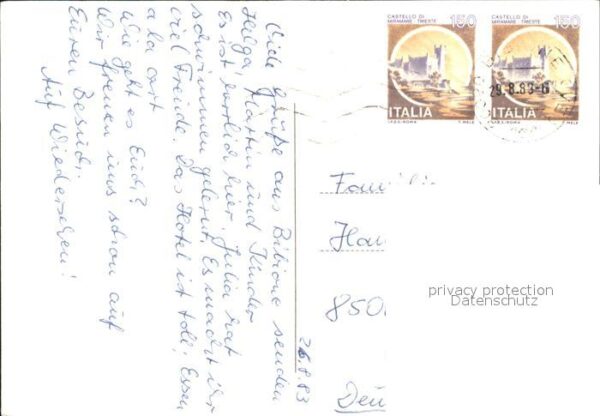 Viele Grüße aus Bibione senden
Helga, Martin und Kinder
Es ist herrlich hier. Julia hat
schwimmen gelernt. Es macht ihr
viel Freude. Das Hotel ist toll; Essen
a la cart
Wie geht es Euch?
Wir freuen uns schon auf
Euren Besuch;
Auf Wiedersehen!
26.8.83
CASTELLO DI
MIRAMARE · TRIESTE
150
ITALIA
I.P.Z.S. ROMA
T. MELE
CASTELLO DI
MIRAMARE · TRIESTE
150
ITALIA
I.P.Z.S. ROMA
T. MELE
29.8.83-
Famili
Han
850
Deu
privacy protection
Datenschutz